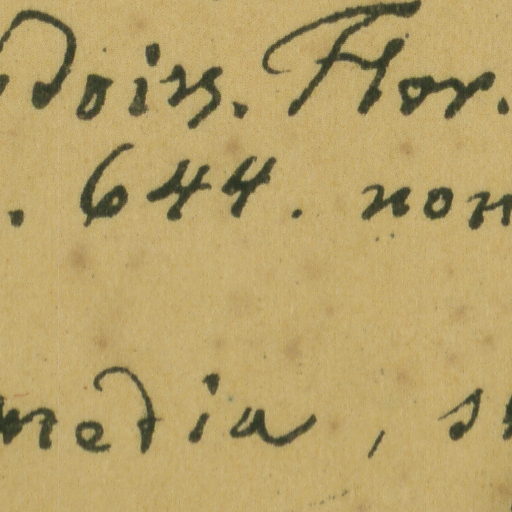 Boiss. Flor.
. 644. non
media, s